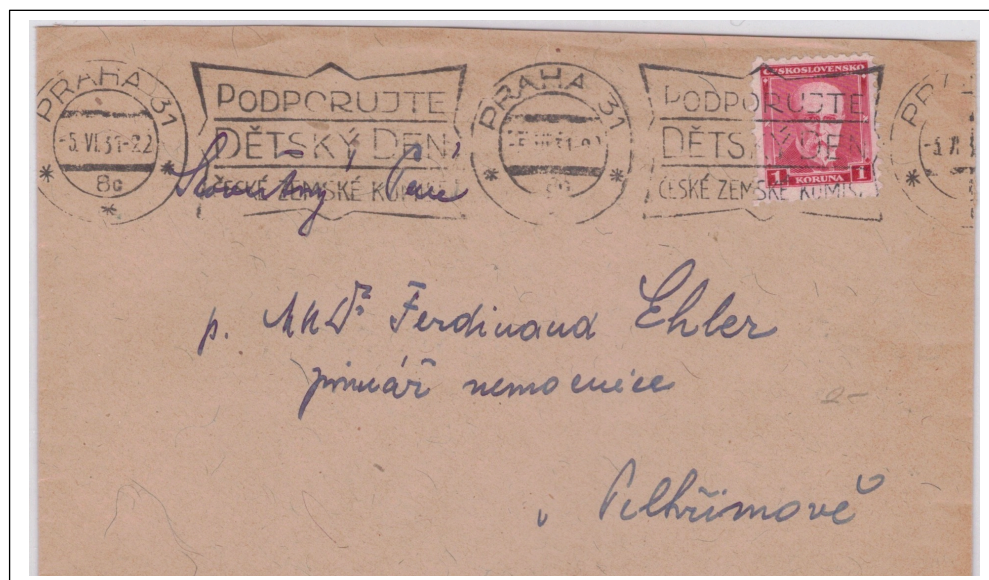 PRAHA 31
-5.VI.31-22
8c
PODPORUJTE
DĚTSKÝ DEN
ČESKÉ ZEMSKÉ KOMISE
PRAHA 31
-5.VI.31-22
8c
PODPORUJTE
DĚTSKÝ DEN
ČESKÉ ZEMSKÉ KOMISE
ČESKOSLOVENSKO
1 KORUNA 1
PRA
-5.VI.3
Slovutný Pan
p. MUDr Ferdinand Ehler
primář nemocnice
v Pelhřimově